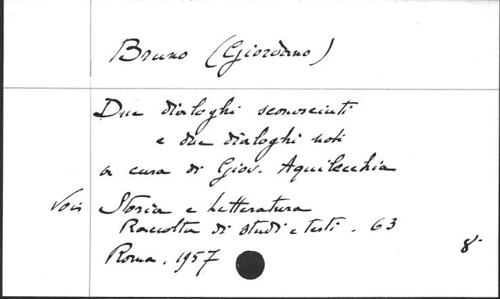 Bruno (Giordano)
Due dialoghi sconosciuti
e due dialoghi noti
a cura di Giov. Aquilecchia
Voir Storia e Letteratura
Raccolta di studi e testi. 63
Roma. 1957
8°